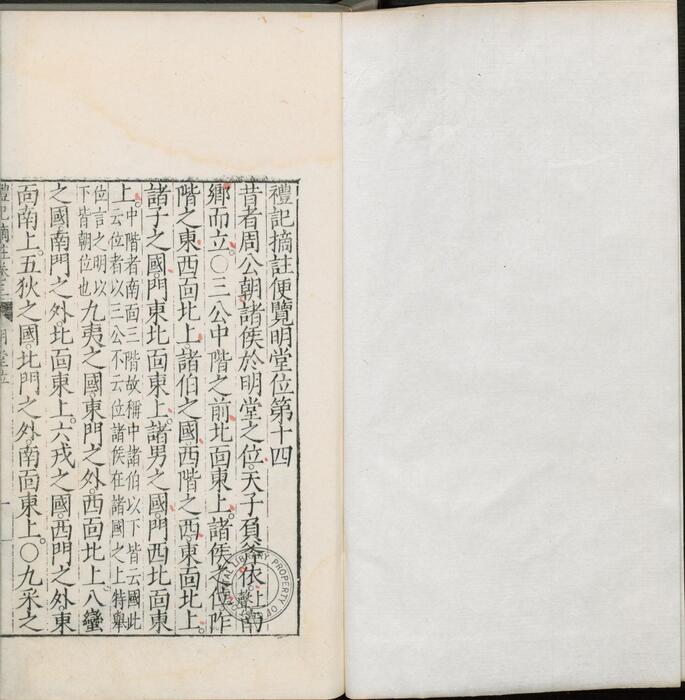 禮記摘註便覽明堂位第十四
昔者周公朝諸侯於明堂之位天子負斧依南
鄉而立〇三公中階之前北面東上諸侯之位阼
階之東西面北上諸伯之國西階之西東面北上
諸子之國門東北面東上諸男之國門西北面東
上中階者南面三階故稱中諸伯以下皆云國此
云位者以三公不云位諸侯在諸國之上特舉
位言之明以
下皆朝位也九夷之國東門之外西面北上八蠻
之國南門之外北面東上六戎之國西門之外東
面南上五狄之國北門之外南面東上〇九采之
禮記摘註卷三 明堂位 一
LIBRARY PROPERTY OF